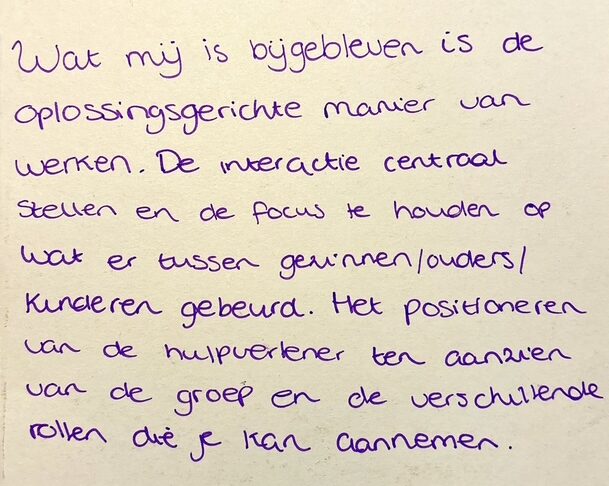 Wat mij is bijgebleven is de
oplossingsgerichte manier van
werken. De interactie centraal
stellen en de focus te houden op
wat er tussen gezinnen/ouders/
kinderen gebeurd. Het positioneren
van de hulpverlener ten aanzien
van de groep en de verschillende
rollen die je kan aannemen.